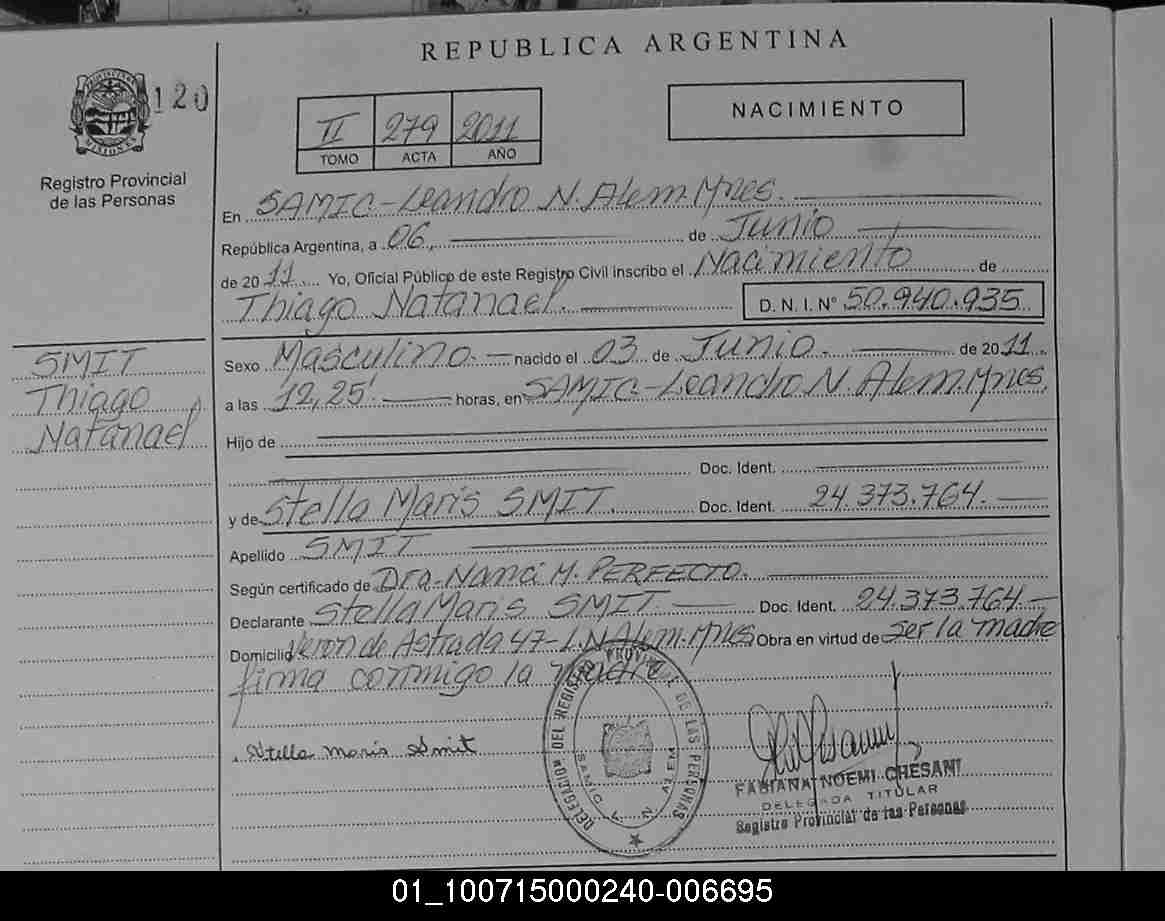 REPUBLICA ARGENTINA
120
MISIONES
Registro Provincial
de las Personas
II 279 2011
TOMO ACTA AÑO
NACIMIENTO
En SAMIC-Leandro N. Alem.Mnes.
República Argentina, a 06, de Junio
de 2011 Yo, Oficial Público de este Registro Civil inscribo el Nacimiento de
Thiago Natanael. D. N. I. N° 50.940.935
SMIT
Thiago
Natanael
Sexo Masculino. nacido el 03 de Junio. de 2011
a las 12,25' horas, en SAMIC-Leandro N. Alem.Mnes.
Hijo de
Doc. Ident.
y de Stella Maris SMIT. Doc. Ident. 24.373.764.
Apellido SMIT
Según certificado de Dra. Nanci M. PERFECTO.
Declarante Stella Maris SMIT Doc. Ident. 24.373.764
Domicilio Veron de Astrada 47-L.N.Alem.Mnes Obra en virtud de ser la madre
firma conmigo la madre
Stella Maris Smit
DELEGACION DEL REGISTRO PROVINCIAL DE LAS PERSONAS
SAMIC
ALEM
FABIANA NOEMI CHESANI
DELEGADA TITULAR
Registro Provincial de las Personas
01_100715000240-006695